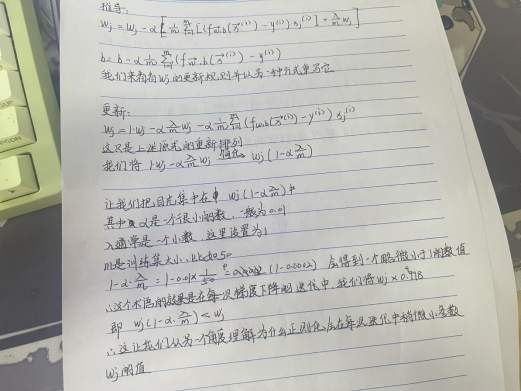 推导:
wj = wj - α[1/m Σ_{i=1}^{m} [(f w,b(x⃗^(i)) - y^(i)) xj^(i)] + λ/m wj]
b = b - α 1/m Σ_{i=1}^{m} (f w,b(x⃗^(i)) - y^(i))
我们来看看wj的更新规则并以另一种方式重写它
更新:
wj = 1·wj - α λ/m wj - α 1/m Σ_{i=1}^{m} (f w,b(x⃗^(i)) - y^(i)) xj^(i)
这只是上述原式的重新排列
我们将 1·wj - α λ/m wj wj(1-α λ/m)
让我们把目光集中在 wj(1-α λ/m)中
其中 α是一个很小的数,一般为0.01
λ通常是一个小数,这里设置为1
m是训练集大小, 50
1-α·λ/m = 1-0.01×1/50 = (1-0.0002) 会得到一个略微小于1的数值
∴这个术语的效果是在每次梯度下降的迭代中,我们将wj×0.9998
即 wj(1-α·λ/m) < wj
∴这让我们从另一个角度理解为什么正则化会在每次迭代中稍微小参数
wj的值